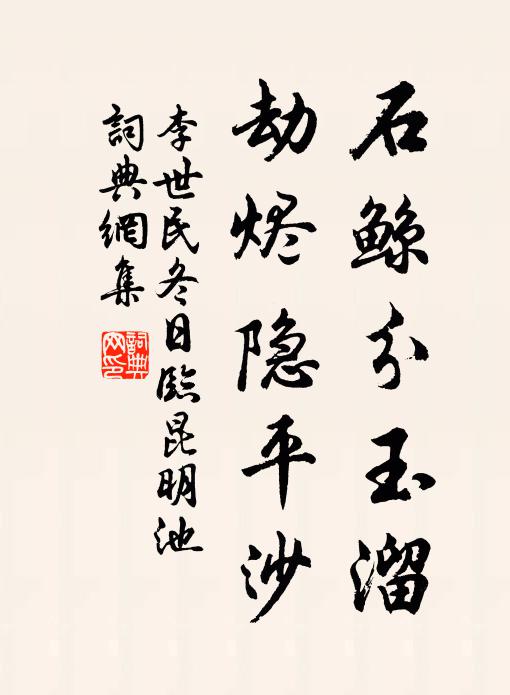 石鲸分玉溜
劫烬隐平沙
李世民冬日臨昆明池
詞典網集
詞典
网印